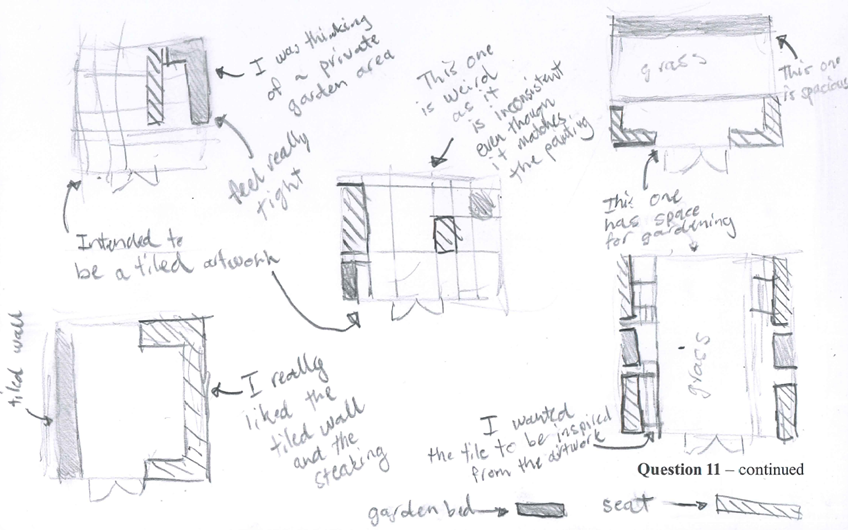 I was thinking
of a private
garden area
feel really
tight
Intended to
be a tiled artwork
This one
is weird
as it
is inconsistent
even though
it matches
the painting
grass
This one
is spacious
This one
has space
for gardening
tiled wall
I really
liked the
tiled wall
and the
steaking
grass
I wanted
the tile to be inspired
from the artwork
Question 11 – continued
garden bed
seat